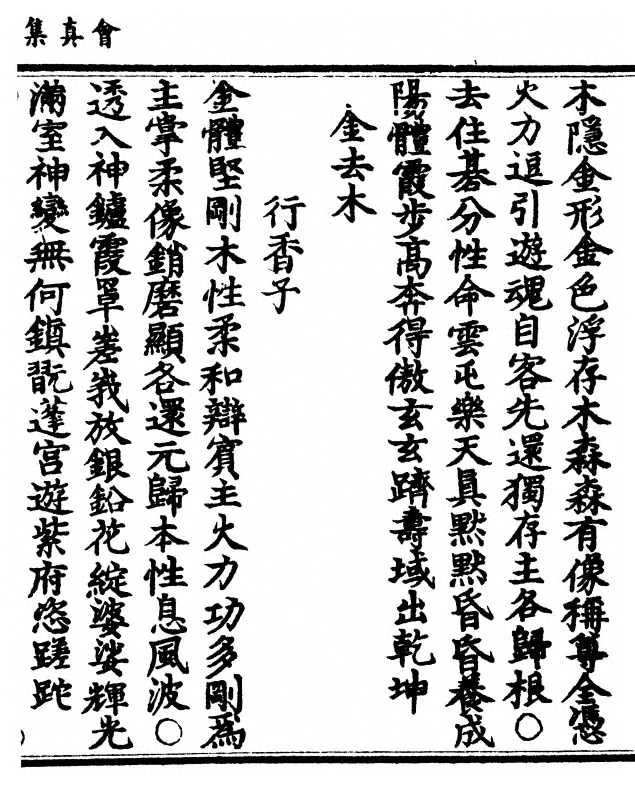 集真會
木隱金形金色浮存木森森有像稱尊全憑
火力逼引遊魂自客先還獨存主各歸根〇
去住碁分性命雲屯樂天真默默昏昏養成
陽體霞步高奔得傲玄玄躋壽域出乾坤
金去木
行香子
金體堅剛木性柔和辯賓主火力功多剛為
主掌柔像銷磨顯各還元歸本性息風波〇
透入神鑪霞罩嵳峩放銀鉛花綻婆娑輝光
滿室神變無何鎮翫蓬宮遊紫府恣蹉跎